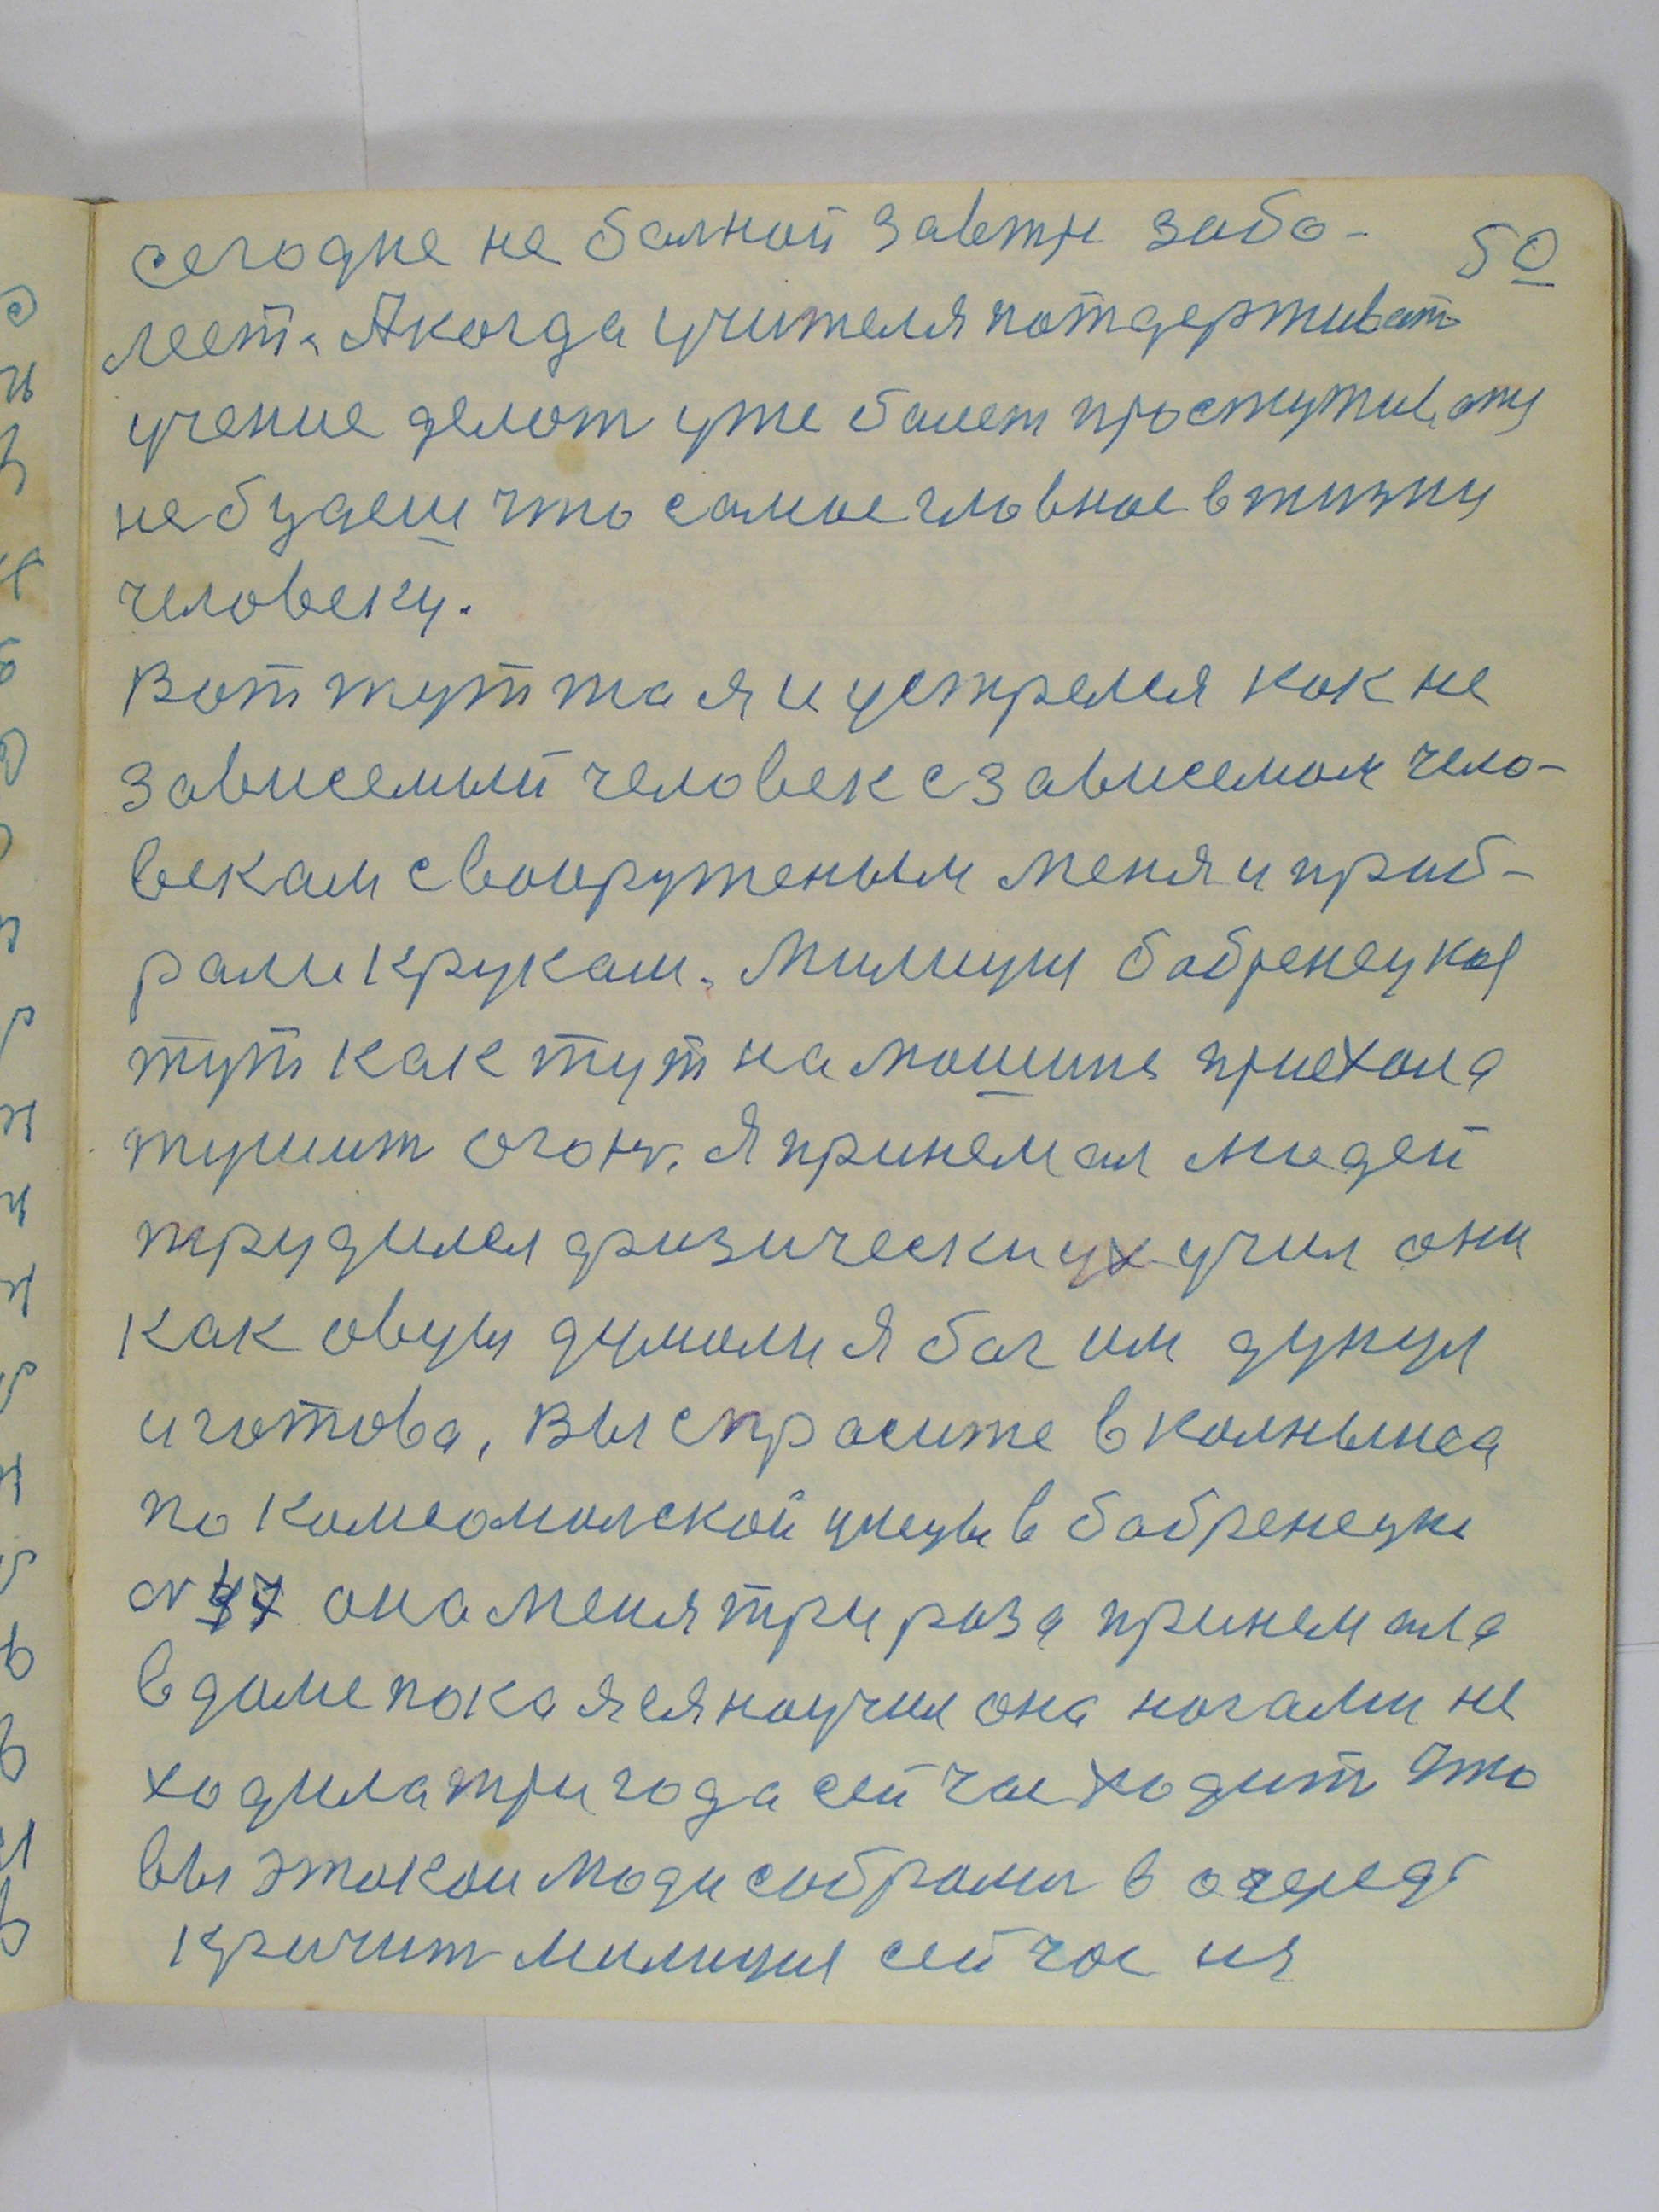 50
сегодне не балной завтри забо-
леет. А когда учителя потдерживат
учение делом уже балет простуживат
не будеш что самое главное в жизни
человеку.
Вот тут та я и устрелся как не
зависемый человек с зависемом чело-
векам с вооруженым меня и приб-
рали к рукам. Милиция бобренецкая
тут как тут на машине приехала
тушит огонь. Я принемал людей
трудился физически их учил они
как овцы думали я бог им дунул
и готова, Вы спрасите в колныиса
по комсомолской улецы в бобренецки
она меня три раза принемала
в доме пока я ея научил она ногами не
ходила три года сейчас ходит что
вы этакои люди собрались в очередь
кричит милиция сейчас ия